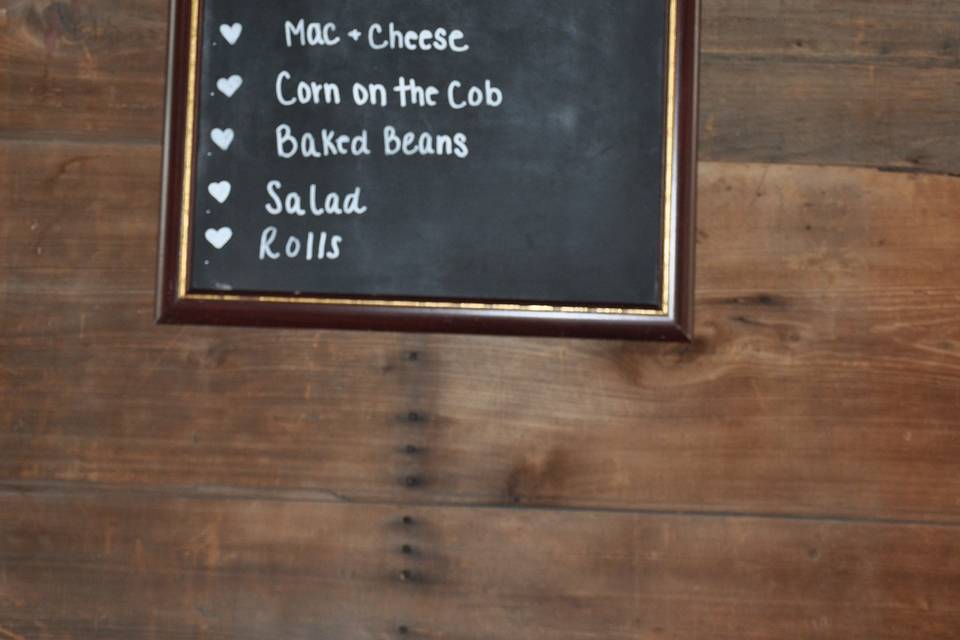 Mac + Cheese
Corn on the Cob
Baked Beans
Salad
Rolls